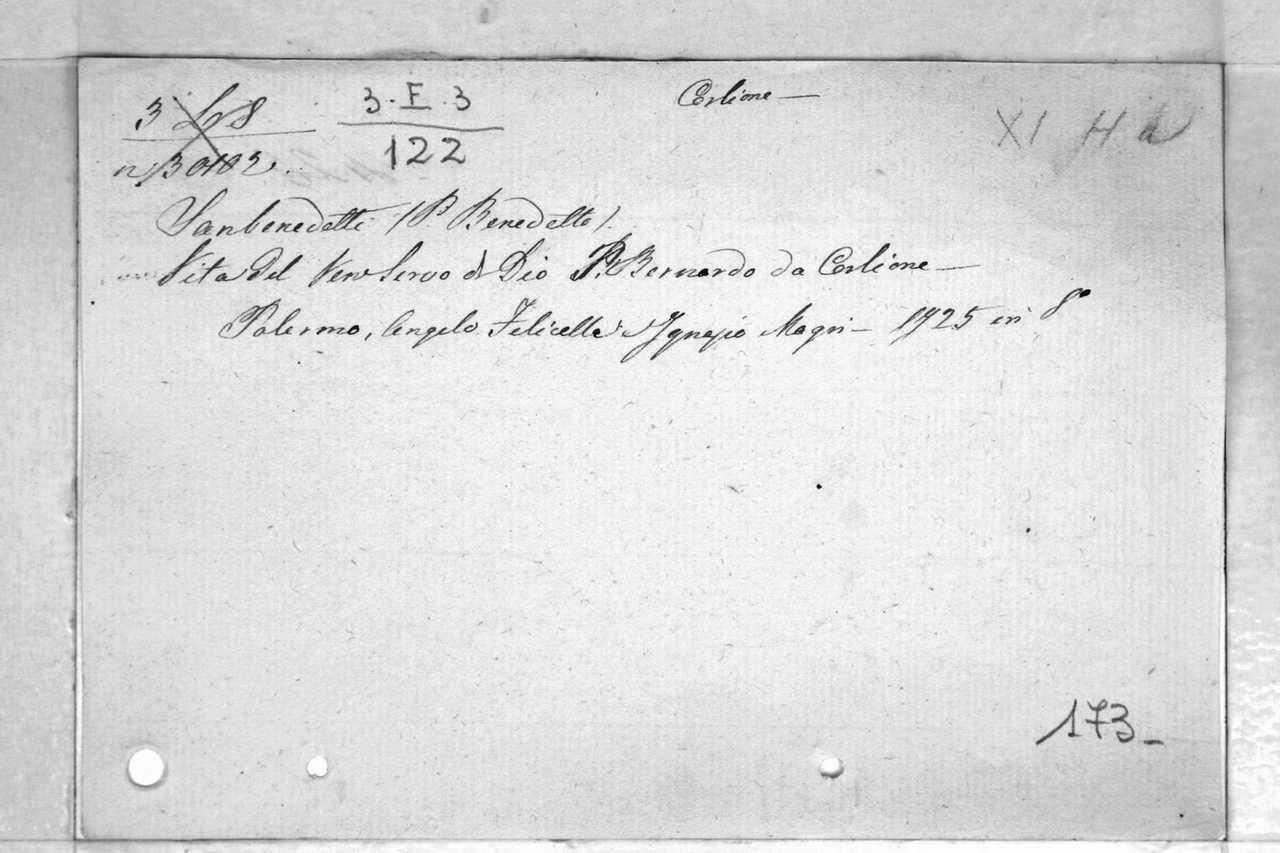 3. F. 3
122
Corlione —
XI H d
n. 30182.
Sanbenedetti (P. Benedetto).
Vita del Ven Servo di Dio P. Bernardo da Corlione —
Palermo, Angelo Felicella e Ignazio Magri — 1725 in 8°
173 –